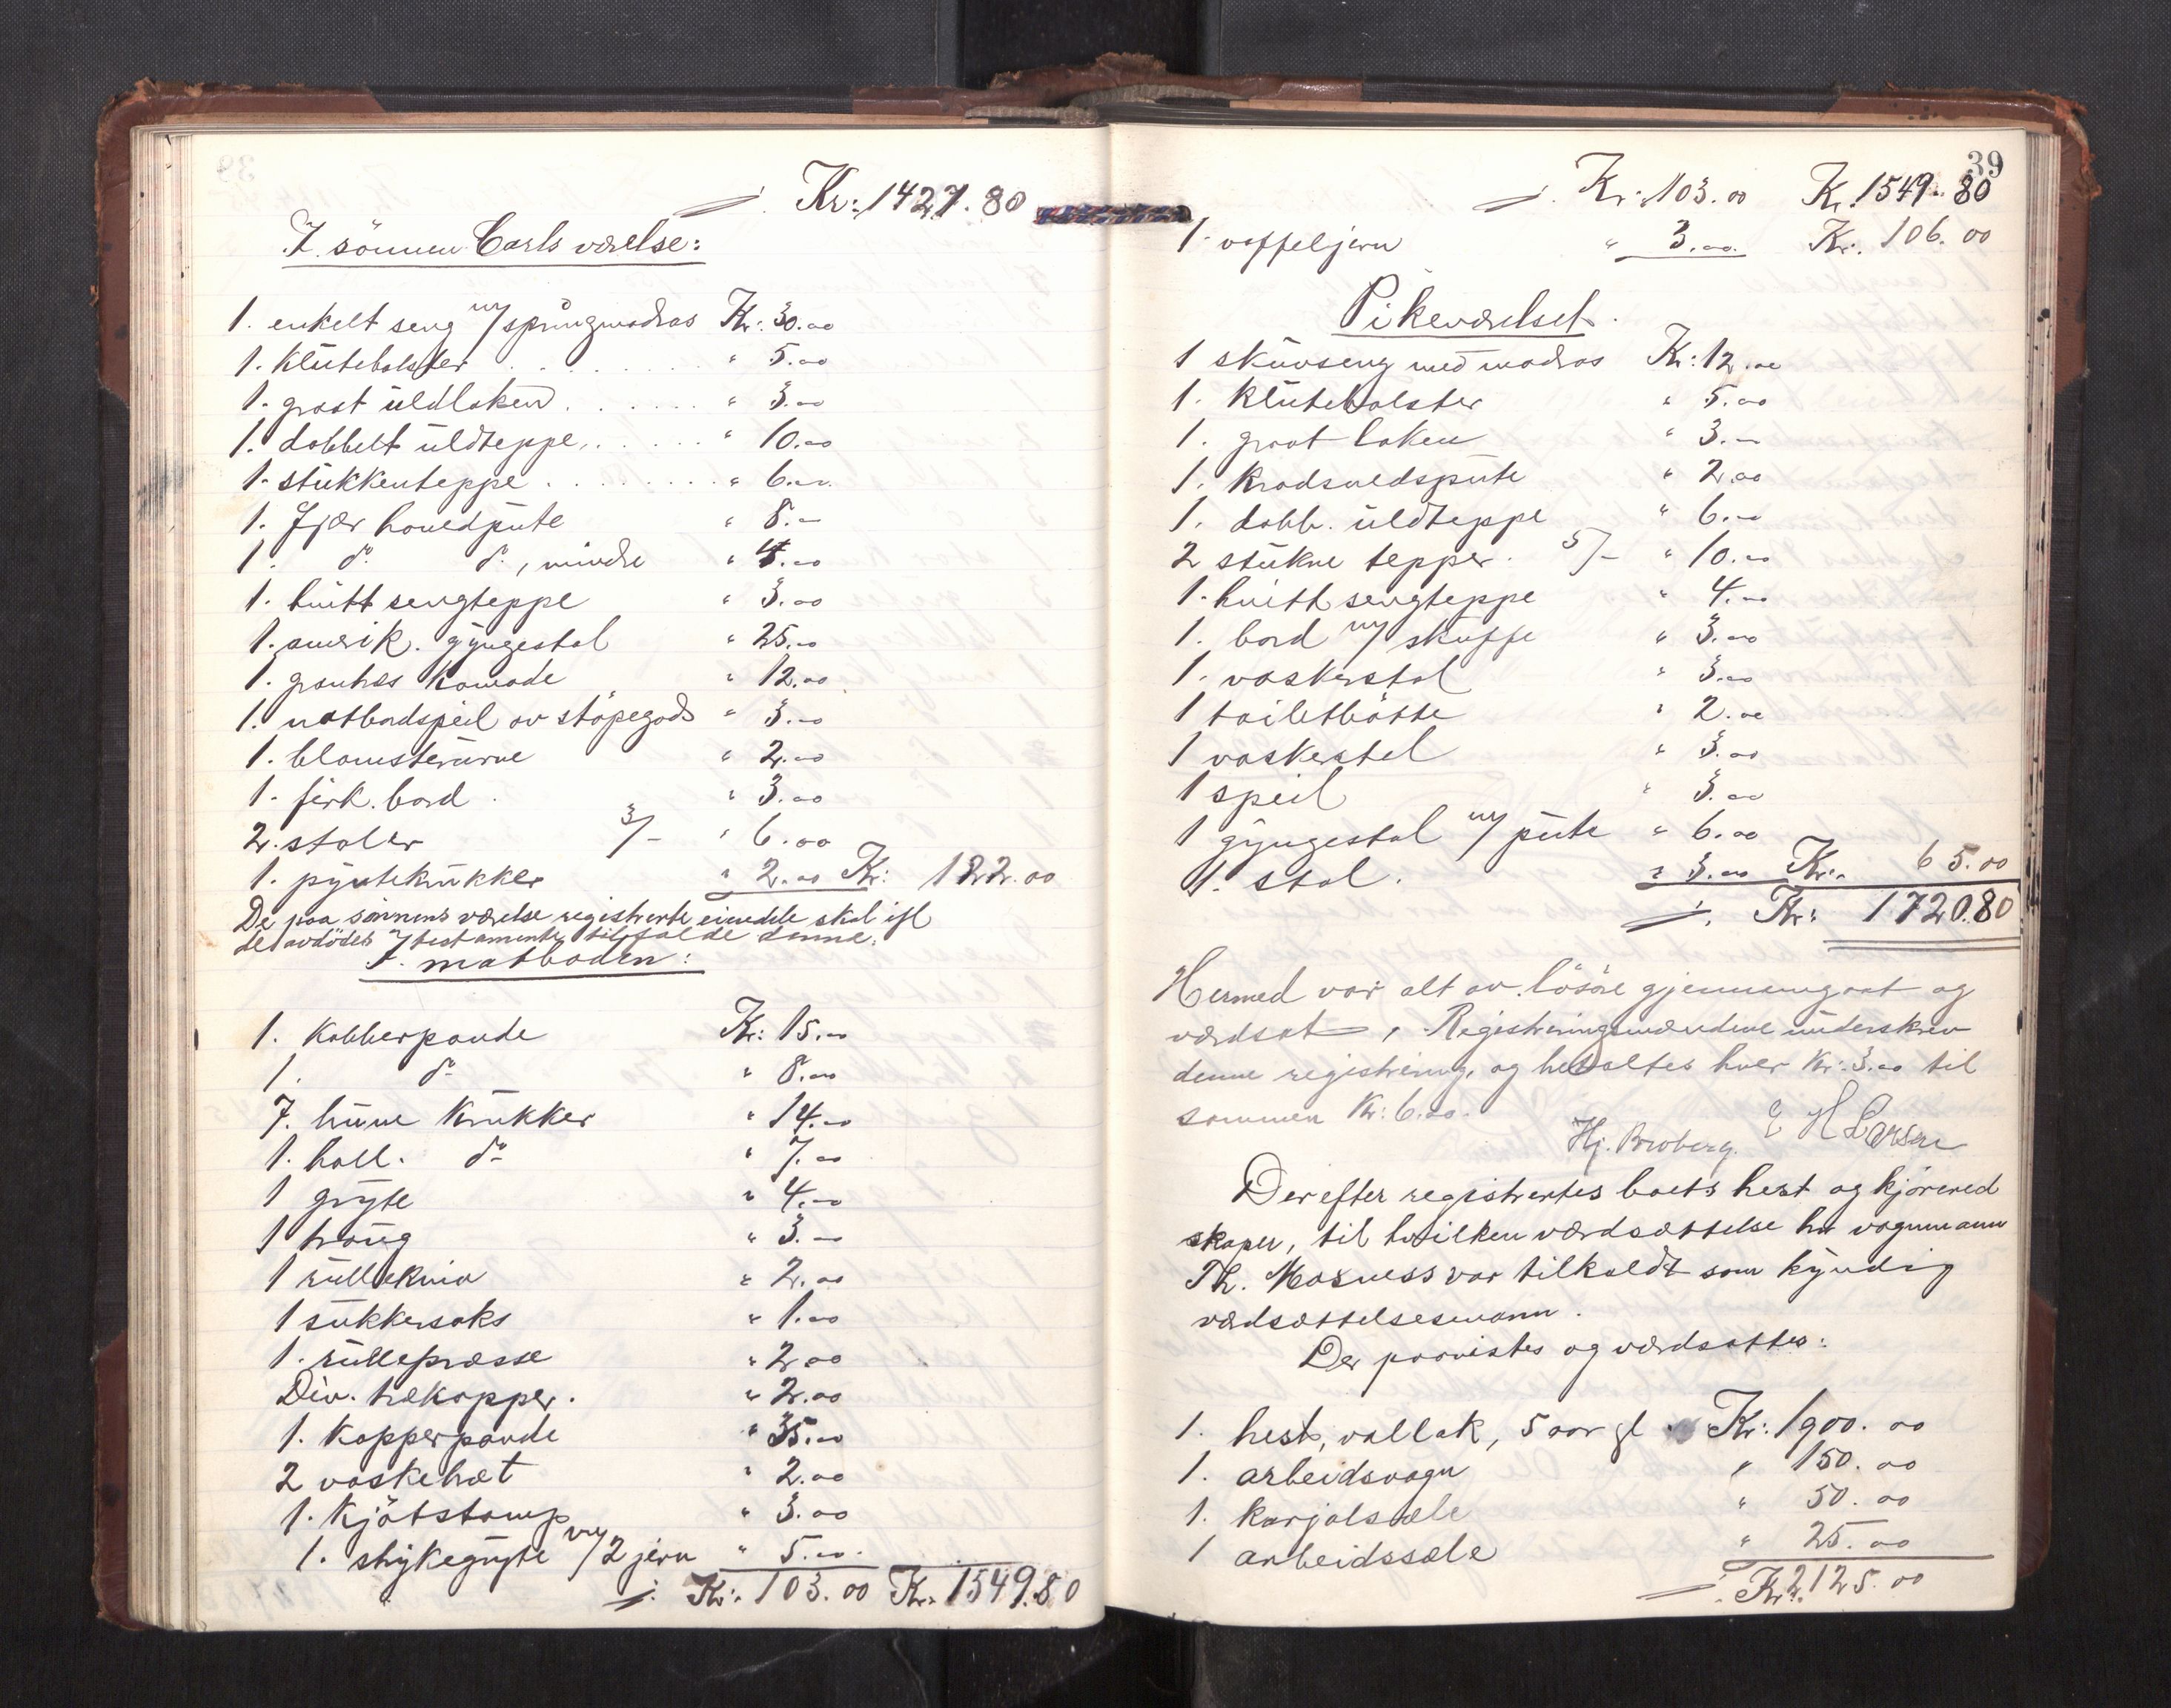 ·/. Kr: 1427.80
I sönnen Carls værelse:
1. enkelt seng m/springmadras Kr: 30.00
1. Klütebolster . . . . . . . . " 5.00
1. graat üldlaken . . . . . . " 3.00
1. dobbelt üldteppe . . . . . " 10.00
1. stükkenteppe . . . . . . . " 6.00
1. Fjær hovedpüte " 8.00
1. do do, mindre " 4.00
1. hvitt sengteppe " 3.00
1. amerik. gyngestol " 25.00
1. granhæs Komode " 12.00
1. natbordspeil av stöpegods " 3.00
1. blomsterürne " 2.00
1. firk. bord " 3.00
2. stoler 3/- " 6.00
1. pyntekrükker " 2.00 Kr: 122.00
De paa sönnens værelse registrerte eiendele skal ifl
de avdödes testamente tilfalde denne.
I matboden:
1. Kobberpande Kr: 15.00
1. do " 8.00
7. brüne Krükker " 14.00
1. holl. do " 7.00
1 gryte " 4.00
1 traug " 3.00
1 rüllekniv " 2.00
1 sükkersaks " 1.00
1. rüllepresse " 2.00
Div. trekopper. " 2.00
1. Kopperpande " 35.00
2 vasketræt " 2.00
1. Kjötstamp " 3.00
1. strykegryte m/2 jern " 5.00
·/. Kr: 103.00 Kr. 1549.80
39
·/. Kr: 103.00 Kr. 1549.80
1. voffeljern " 3.00 Kr. 106.00
Pikeværelset.
1 sküvseng med madras Kr: 12.00
1. Klütebolster " 5.00
1. graat laken " 3.00
1. Krodsuedspüte " 2.00
1. dobb. üldteppe " 6.00
2 stükne tepper. 5/- " 10.00
1. hvitt sengteppe " 4.00
1. bord m/ sküffe " 3.00
1. vaskerstol " 3.00
1 toiletbötte " 2.00
1 vaskestel " 3.00
1 speil " 3.00
1 gyngestol m/ püte " 6.00
1. stol. " 3.00 Kr. 65.00
·/. Kr: 1720.80
Hermed var alt av lösöre gjennemgaat og
værdsat, Registreringsmændene ünderskrev
denne registrering, og betaltes hver Kr: 3.00 til
sammen Kr: 6.00.
Hj. Broberg. E H Larsen
Derefter registrertes boets hest og kjörered
skaper, til hvilken værdsættelse hr vognmann
Th. Masness var tilkaldt som kyndig
værdsættelsesmann.
Der paavistes og værdsattes:
1. hest, vallak, 5 aar gl Kr: 1900.00
1. arbeidsvogn " 150.00
1. karjolsæle " 50.00
1 arbeidssæle " 25.00
·/. Kr. 2125.00